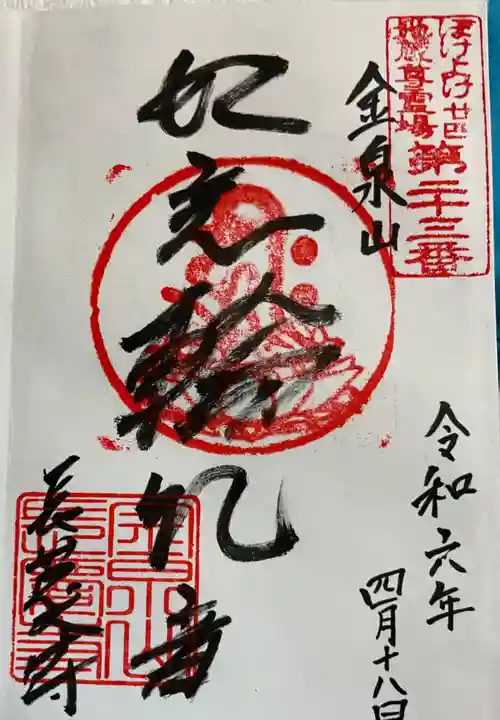 ほけよけ廿四
地蔵尊霊場
第二十三番
金泉山
如意輪観音
長慶寺
令和六年
四月十八日